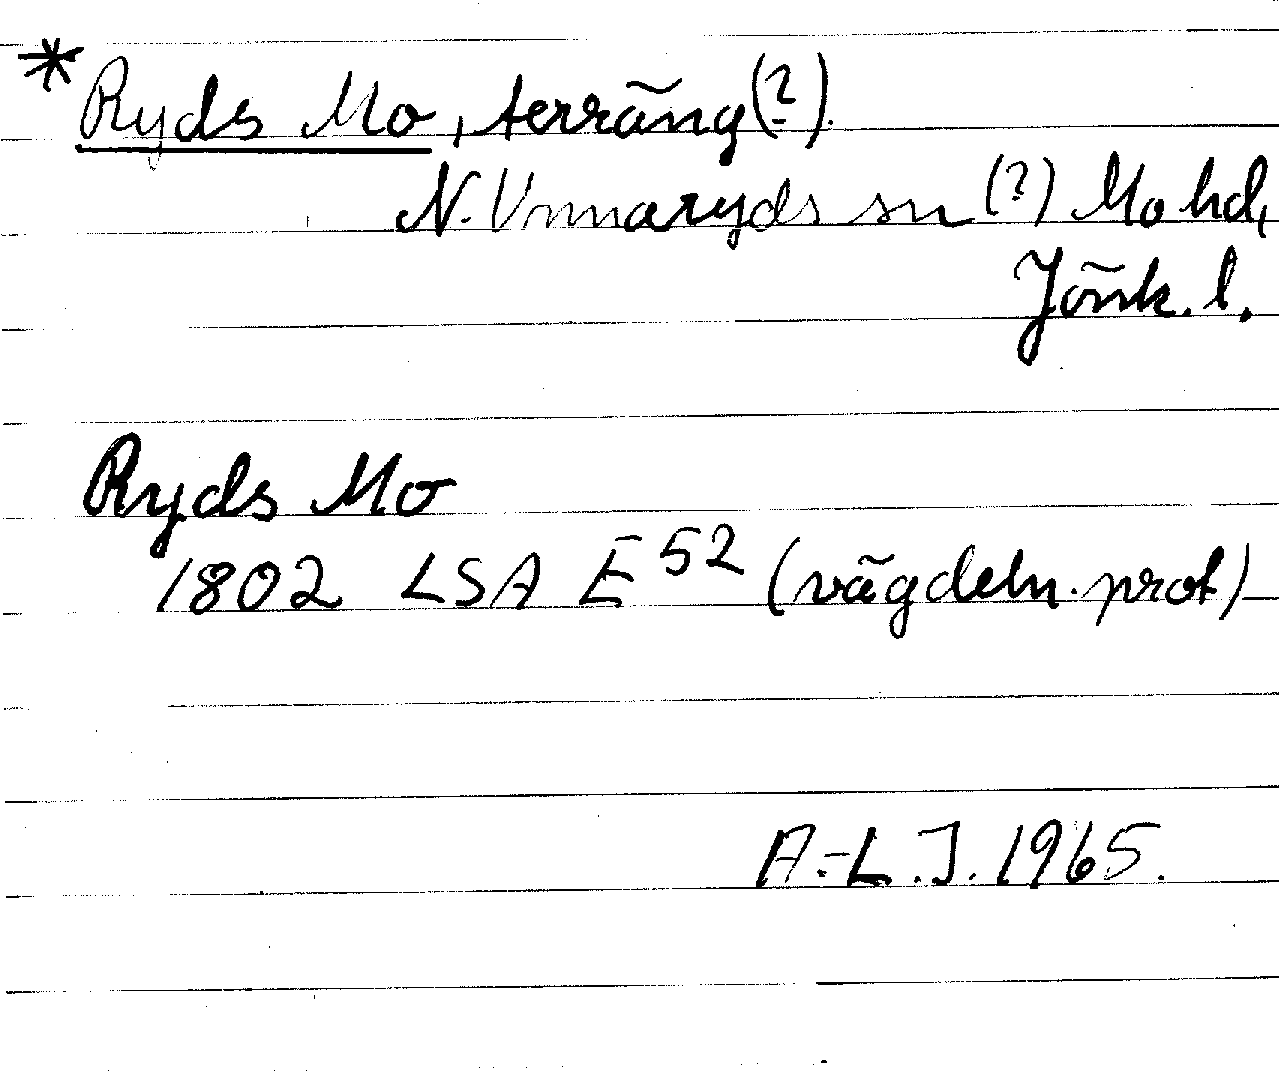 * Ryds Mo, terräng (?).
N. Unnaryds sn (?) Mo hd,
Jönk. l.
Ryds Mo
1802 LSA E 52 (vägdeln. prot)
A.-L. J. 1965.